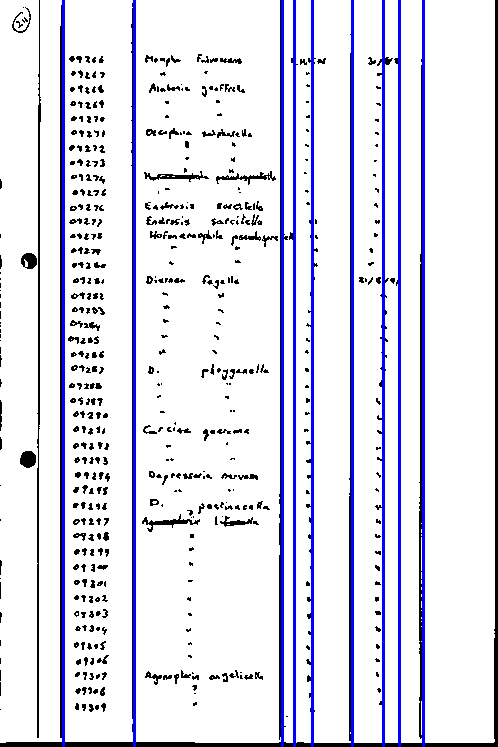 211
09266 Mompha Fulvescens 30/8/8
09267 " "
09268 Alabonia geoffrella "
09269 " " "
09270 " " "
09271 Oecophora sulphurella "
09272 " " "
09273 " " "
09274 pseudospretella "
09275 " " "
09276 Endrosis sarcitella "
09277 Endrosis sarcitella " "
09278 Hofmannophila pseudospretella " "
09279 " " " "
09280 " " " "
09281 Diurnea fagella " 21/8/91
09282 " " " "
09283 " " " "
09284 " " " "
09285 " " " "
09286 " " " "
09287 D. phryganella " "
09288 " " " "
09289 " " " "
09290 " " " "
09291 Carcina quercana " "
09292 " " " "
09293 " " " "
09294 Depressaria nervosa " "
09295 " " " "
09296 D. pastinacella " "
09297 " "
09298 " " "
09299 " " "
09300 " " "
09301 " " "
09302 " " "
09303 " " "
09304 " " "
09305 " " "
09306 " " "
09307 Agonopterix angelicella " "
09308 ? " "
09309 " " "